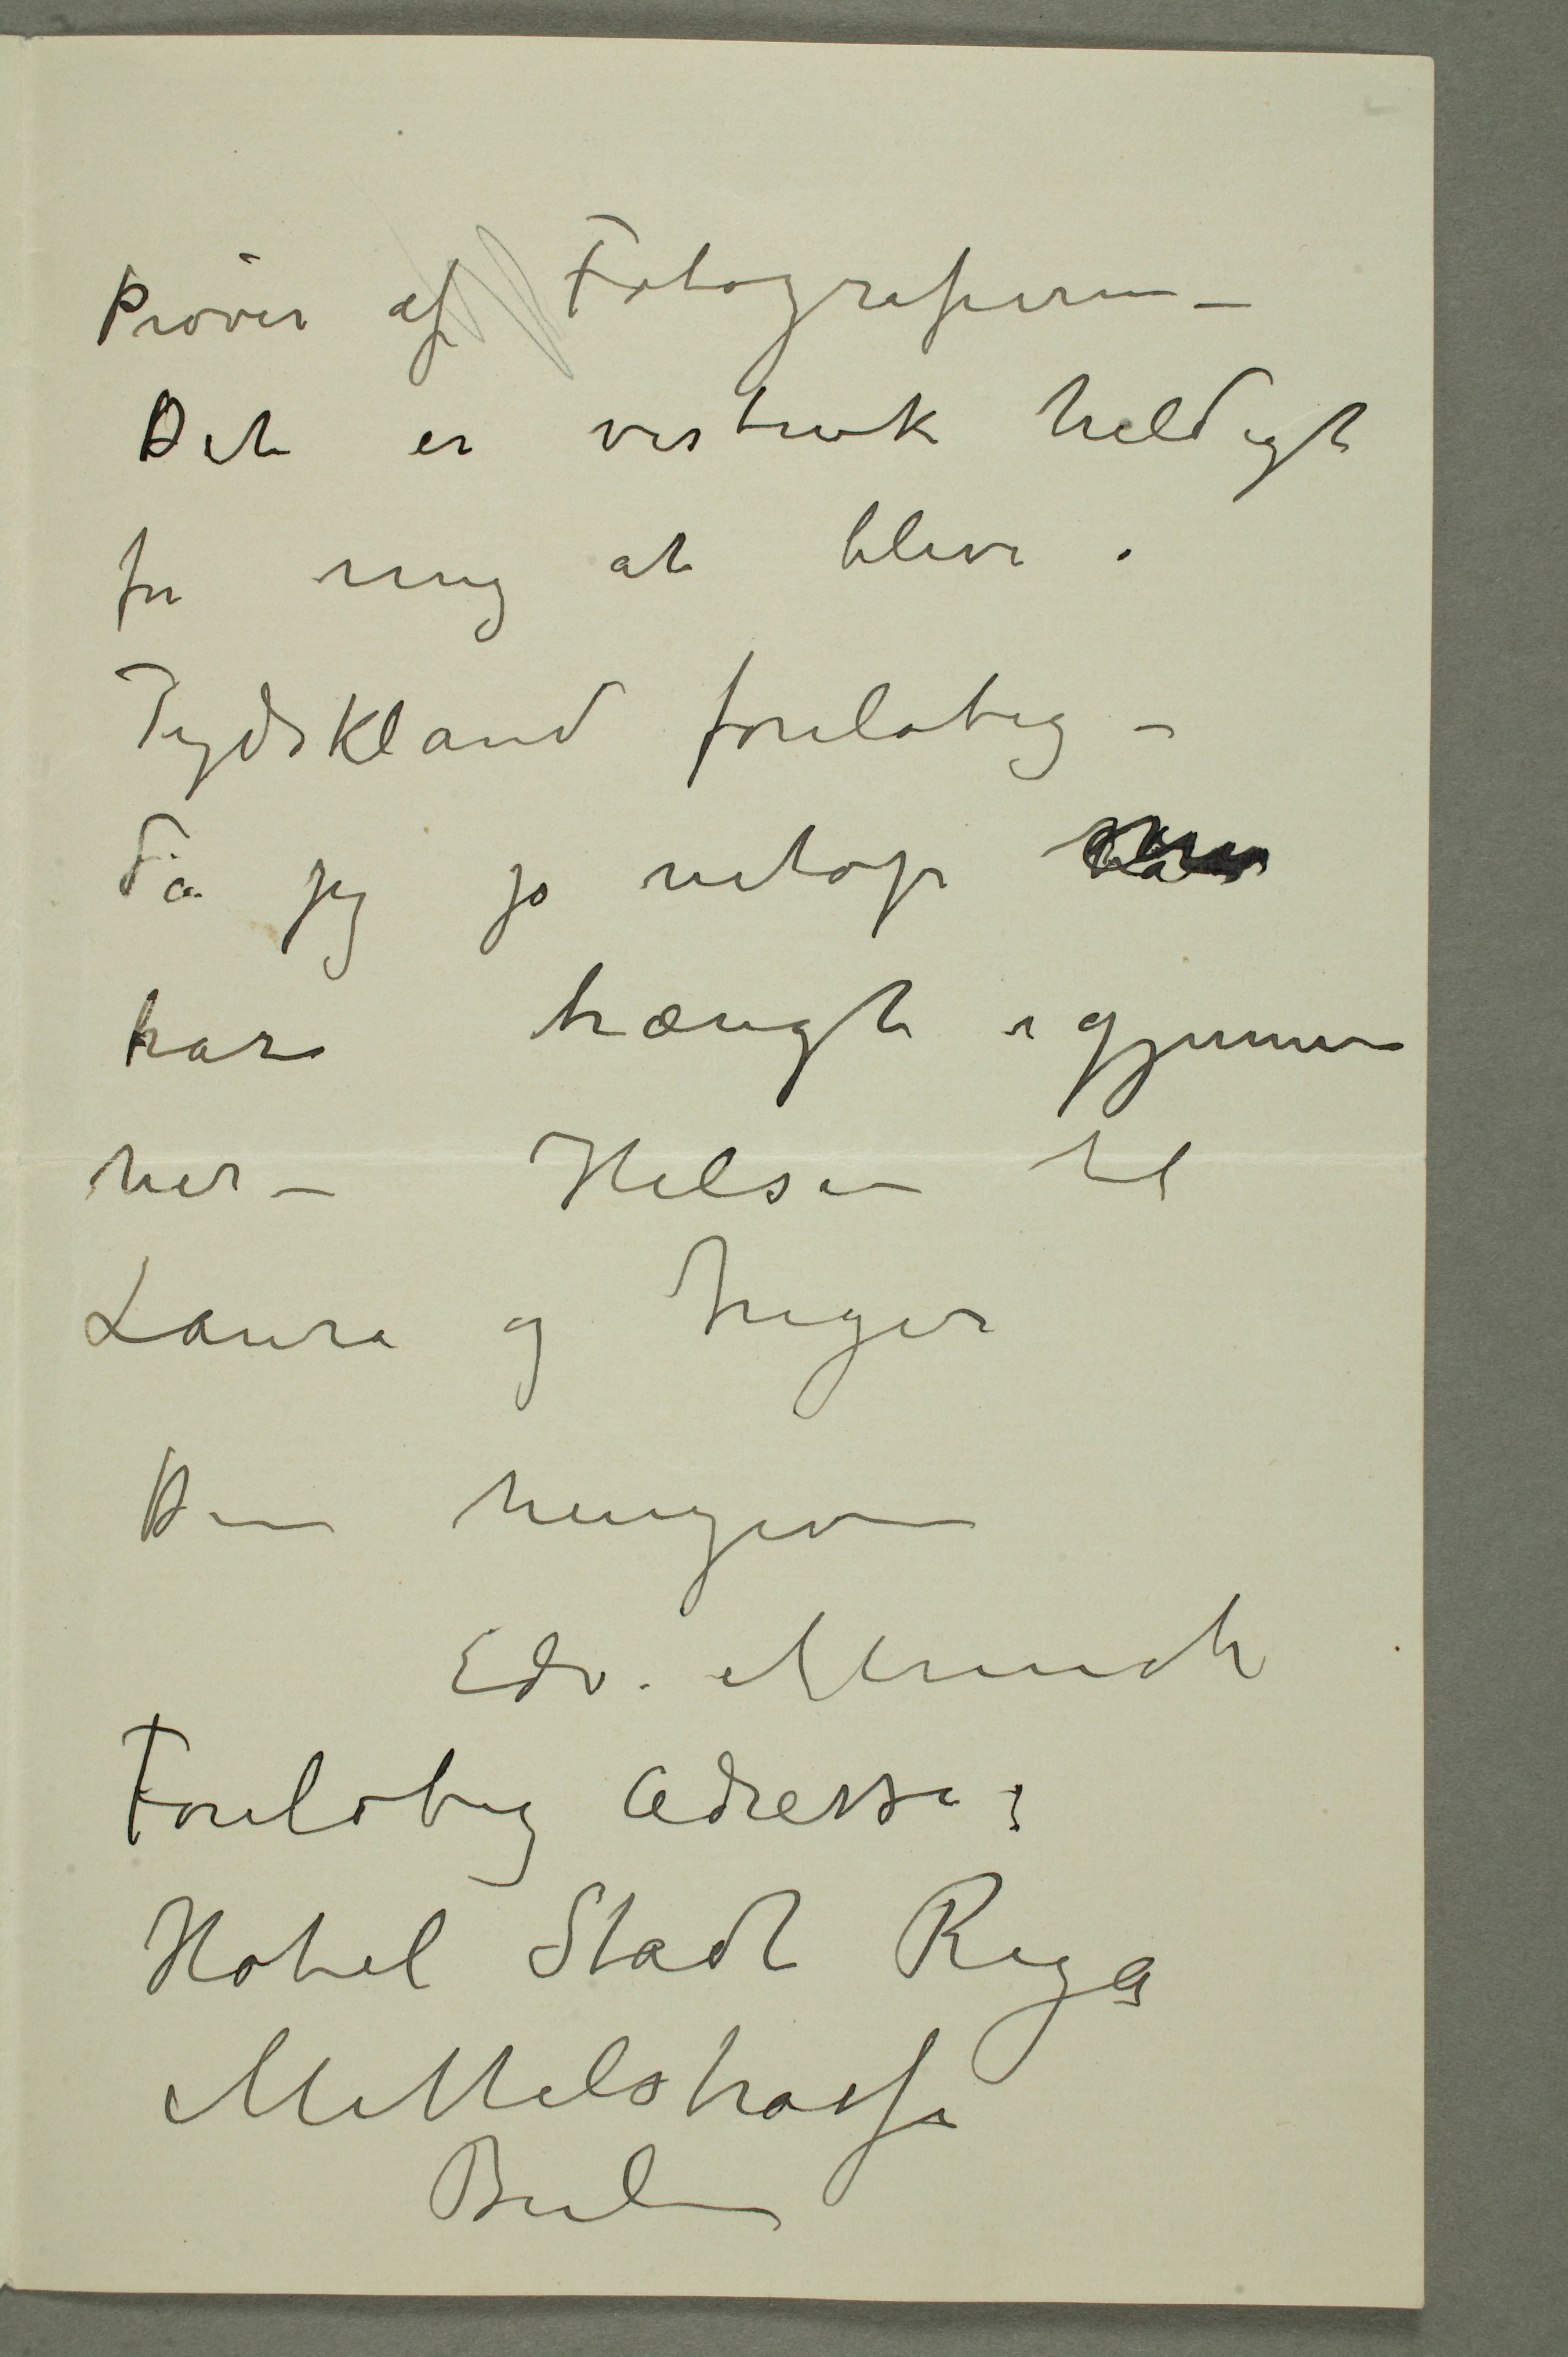 Prøver af Fotografierne –
Det er vistnok heldigt
for mig at blive i
Tydskland foreløbig –
da jeg jo netop
har trængt igjennem
her – Hilsen til
Laura og Inger
Din hengivne
Edv. Munch
Foreløbig Adresse:
Hotel Stadt Riga
Mittelstrasse
Berlin